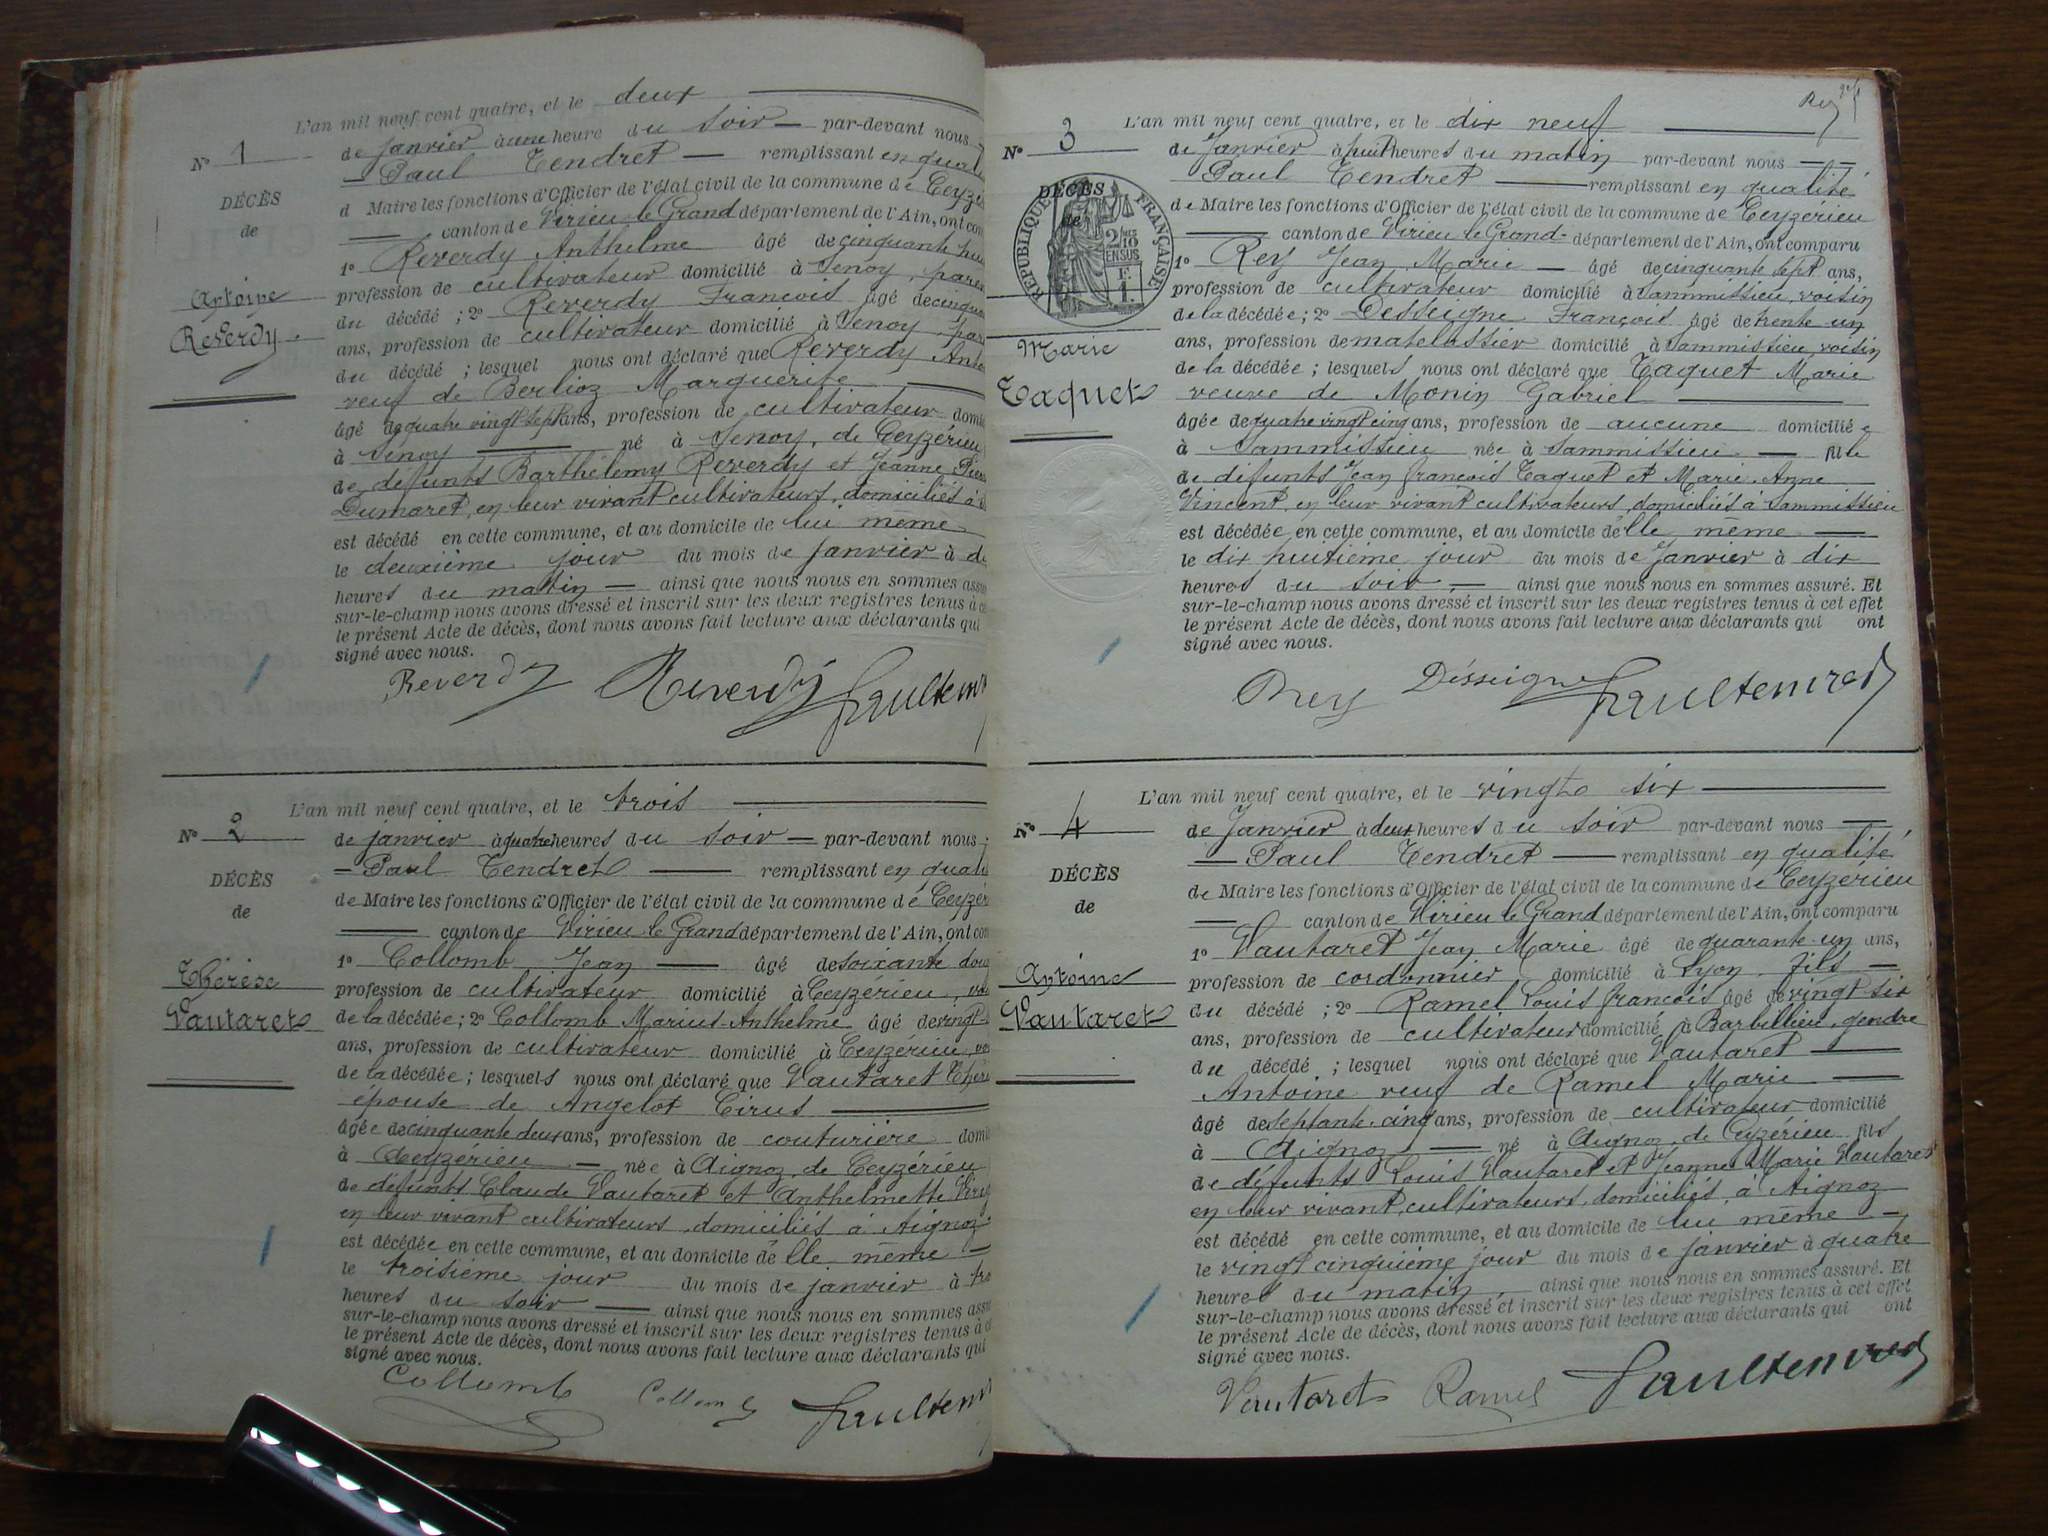 L'an mil neuf cent quatre, et le deux
N° 1
de janvier à une heure du soir par-devant nous
Paul Tendret remplissant en
DÉCÈS
d Maire les fonctions d'Officier de l'état civil de la commune de
de
canton de Virieu le Grand département de l'Ain, ont
1° Reverdy Anthelme âgé de cinquante
Antoine
profession de cultivateur domicilié à Senoy,
Reverdy
du décédé ; 2° Reverdy François âgé de
ans, profession de cultivateur domicilié à Senoy
du décédé ; lesquel nous ont déclaré que Reverdy
veuf de Berlioz Marguerite
âgé de quatre vingt sept ans, profession de cultivateur
à Senoy né à Senoy, de Ceyzérieu
de défunts Barthélemy Reverdy et Jeanne
Dumaret, en leur vivant cultivateurs, domiciliés à
est décédé en cette commune, et au domicile de lui même
le deuxième jour du mois de janvier à
heures du matin ainsi que nous nous en sommes
sur-le-champ nous avons dressé et inscrit sur les deux registres tenus à
le présent Acte de décès, dont nous avons fait lecture aux déclarants qui
signé avec nous.
Reverdy Reverdy
L'an mil neuf cent quatre, et le trois
N° 2
de janvier à quatre heures du soir par-devant nous
Paul Tendret remplissant en
DÉCÈS
de Maire les fonctions d'Officier de l'état civil de la commune de
de
canton de Virieu le Grand département de l'Ain, ont
1° Collomb Jean âgé de soixante
Thérèse
profession de cultivateur domicilié à Ceyzérieu,
Vautaret
de la décédée ; 2° Collomb Marius-Anthelme âgé de
ans, profession de cultivateur domicilié à Ceyzérieu,
de la décédée ; lesquels nous ont déclaré que Vautaret
épouse de Angelot Cirus
âgée de cinquante deux ans, profession de couturière
à Ceyzérieu née à Aignoz, de Ceyzérieu
de défunts Claude Vautaret et Anthelmette
en leur vivant cultivateurs, domiciliés à Aignoz
est décédée en cette commune, et au domicile d'elle même
le troisième jour du mois de janvier à
heures du soir ainsi que nous nous en sommes
sur-le-champ nous avons dressé et inscrit sur les deux registres tenus à
le présent Acte de décès, dont nous avons fait lecture aux déclarants qui
signé avec nous.
Collomb Collomb
Rey
L'an mil neuf cent quatre, et le dix neuf
N° 3
de Janvier à huit heures du matin par-devant nous
Paul Tendret remplissant en qualité
DÉCÈS
de
RÉPUBLIQUE FRANÇAISE
de Maire les fonctions d'Officier de l'état civil de la commune de Ceyzérieu
canton de Virieu le Grand département de l'Ain, ont comparu
1° Rey Jean Marie âgé de cinquante sept ans,
profession de cultivateur domicilié à Sammissieu, voisin
de la décédée ; 2° Desseigne François âgé de trente un
Marie
ans, profession de matelassier domicilié à Sammissieu voisin
Taquet
de la décédée ; lesquels nous ont déclaré que Taquet Marie
veuve de Monin Gabriel
âgée de quatre vingt cinq ans, profession de aucune domiciliée
à Sammissieu née à Sammissieu fille
de défunts Jean François Taquet et Marie Anne
Vincent, en leur vivant cultivateurs, domiciliés à Sammissieu
est décédée en cette commune, et au domicile d'elle même
le dix huitième jour du mois de Janvier à dix
heures du soir ainsi que nous nous en sommes assuré. Et
sur-le-champ nous avons dressé et inscrit sur les deux registres tenus à cet effet
le présent Acte de décès, dont nous avons fait lecture aux déclarants qui ont
signé avec nous.
Rey Désseigne Paul Tendret
L'an mil neuf cent quatre, et le vingt six
N° 4
de Janvier à deux heures du soir par-devant nous
Paul Tendret remplissant en qualité
DÉCÈS
de Maire les fonctions d'Officier de l'état civil de la commune de Ceyzérieu
de
canton de Virieu le Grand département de l'Ain, ont comparu
1° Vautaret Jean Marie âgé de quarante-un ans,
Antoine
profession de cordonnier domicilié à Lyon, fils
Vautaret
du décédé ; 2° Ramel Louis François âgé de vingt-six
ans, profession de cultivateur domicilié à Barbillieu, gendre
du décédé ; lesquel nous ont déclaré que Vautaret
Antoine veuf de Ramel Marie
âgé de septante-cinq ans, profession de cultivateur domicilié
à Aignoz né à Aignoz, de Ceyzérieu fils
de défunts Louis Vautaret et Jeanne Marie Vautaret
en leur vivant, cultivateurs, domiciliés à Aignoz
est décédé en cette commune, et au domicile de lui même
le vingt cinquième jour du mois de janvier à quatre
heures du matin ainsi que nous nous en sommes assuré. Et
sur-le-champ nous avons dressé et inscrit sur les deux registres tenus à cet effet
le présent Acte de décès, dont nous avons fait lecture aux déclarants qui ont
signé avec nous.
Vautaret Ramel Paul Tendret